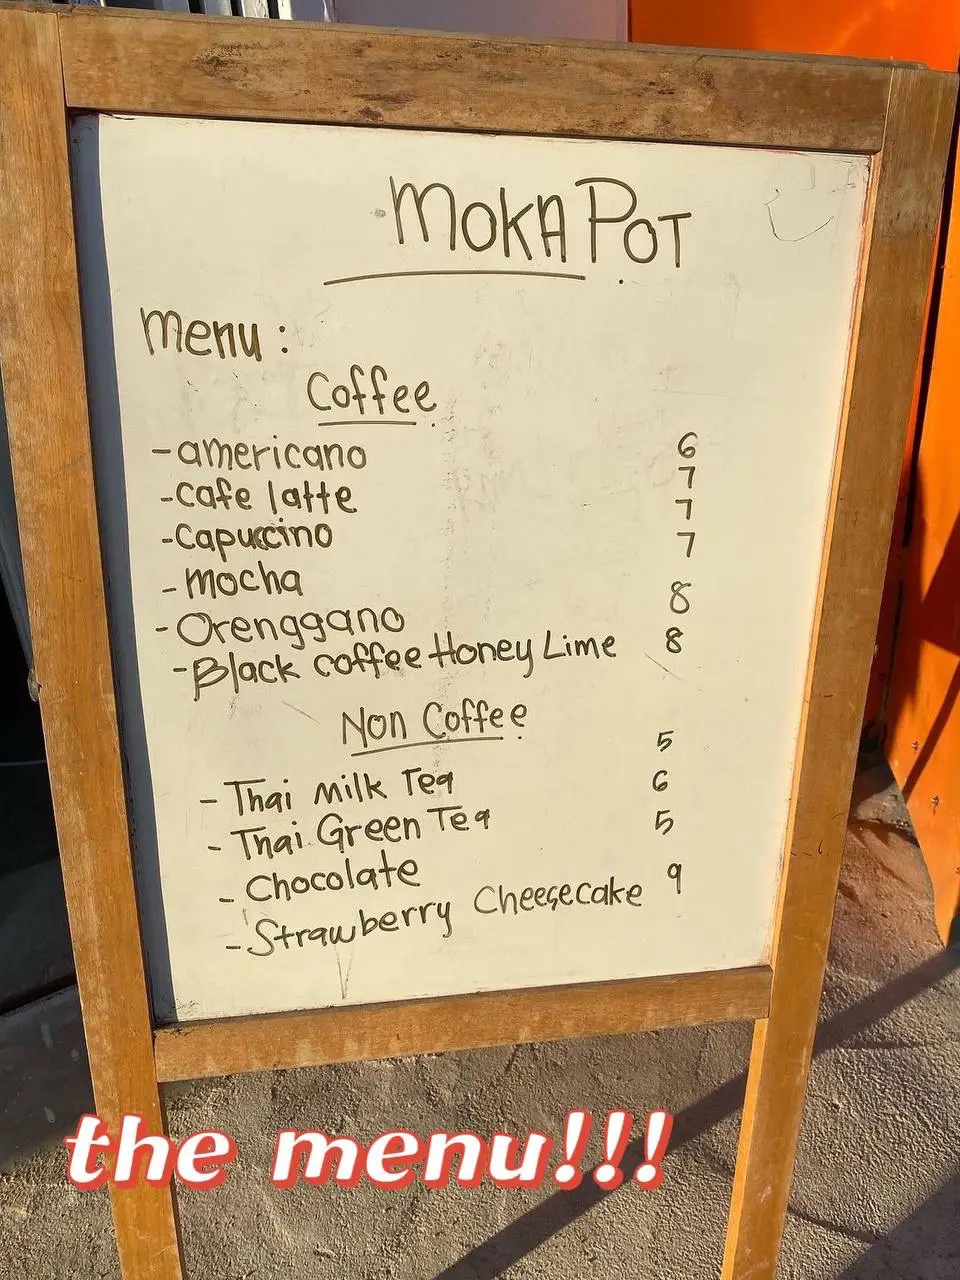 MOKA POT
Menu :
Coffee
- americano 6
- cafe latte 7
- Capuccino 7
- mocha 7
- Orenggano 8
- Black coffee Honey Lime 8
Non Coffee
- Thai Milk Tea 5
- Thai Green Tea 6
- Chocolate 5
- Strawberry Cheesecake 9
the menu!!!